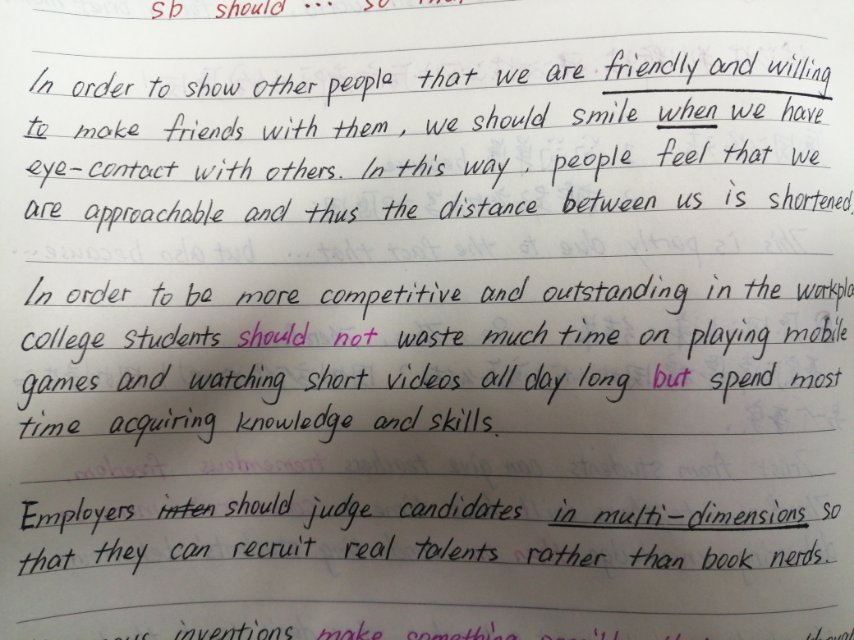 sb should ... so
In order to show other people that we are friendly and willing
to make friends with them, we should smile when we have
eye-contact with others. In this way, people feel that we
are approachable and thus the distance between us is shortened.
In order to be more competitive and outstanding in the workpla
college students should not waste much time on playing mobile
games and watching short videos all day long but spend most
time acquiring knowledge and skills.
Employers inten should judge candidates in multi-dimensions so
that they can recruit real talents rather than book nerds.
inventions make something